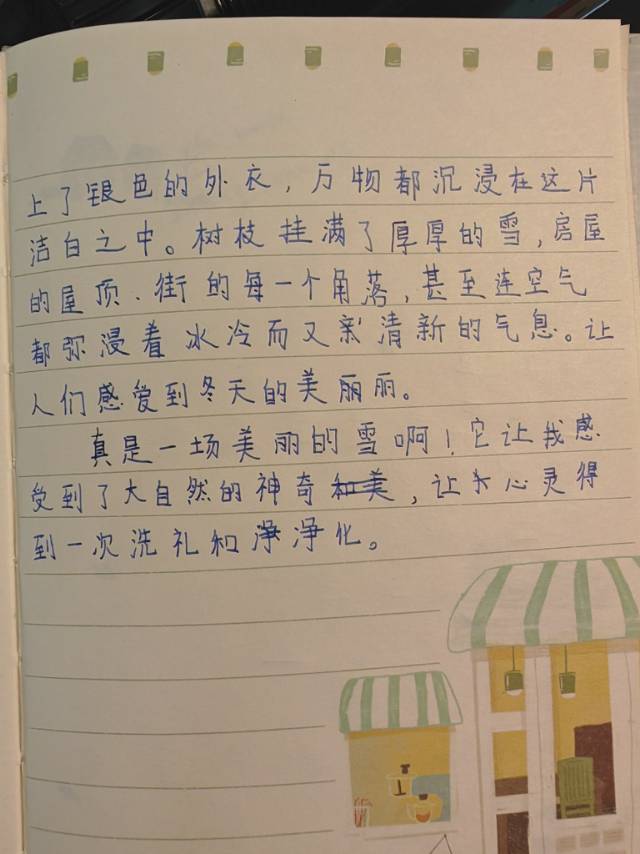 上了银色的外衣，万物都沉浸在这片
洁白之中。树枝挂满了厚厚的雪，房屋
的屋顶、街的每一个角落，甚至连空气
都弥浸着冰冷而又清新的气息。让
人们感爱到冬天的美丽丽。
真是一场美丽的雪啊！它让我感
受到了大自然的神奇和美，让我心灵得
到一次洗礼和净净化。